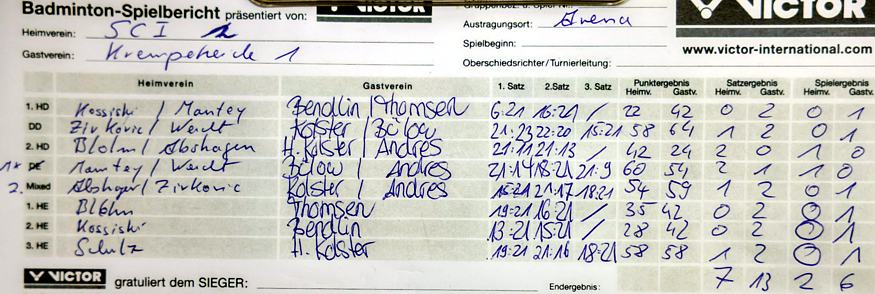 Badminton-Spielbericht präsentiert von: VICTOR
Heimverein: SCI
Gastverein: Krempeheide 1
Austragungsort: Arena
Spielbeginn:
Oberschiedsrichter / Turnierleitung:
VICTOR
www.victor-international.com
Heimverein Gastverein 1. Satz 2. Satz 3. Satz Punktergebnis Heimv. Gastv. Satzergebnis Heimv. Gastv. Spielergebnis Heimv. Gastv.
1. HD Kossiski / Mantey Bendlin / Thomsen 6:21 16:21 / 22 42 0 2 0 1
DD Zivkovic / Weidt Kolster / Bülow 21:23 22:20 15:21 58 64 1 2 0 1
2. HD Blohm / Abshagen H. Kolster / Andres 21:11 21:13 / 42 24 2 0 1 0
1. DE Mantey / Weidt Bülow / Andres 21:14 18:21 21:9 60 54 2 1 1 0
2. Mixed Abshagen / Zivkovic Kolster / Andres 15:21 21:17 18:21 54 59 1 2 0 1
1. HE Blohm Thomsen 19:21 16:21 / 35 42 0 2 0 1
2. HE Kossiski Bendlin 13:21 15:21 / 28 42 0 2 0 1
3. HE Schulz H. Kolster 19:21 21:16 18:21 58 58 1 2 0 1
VICTOR gratuliert dem SIEGER: Endergebnis: 7 13 2 6